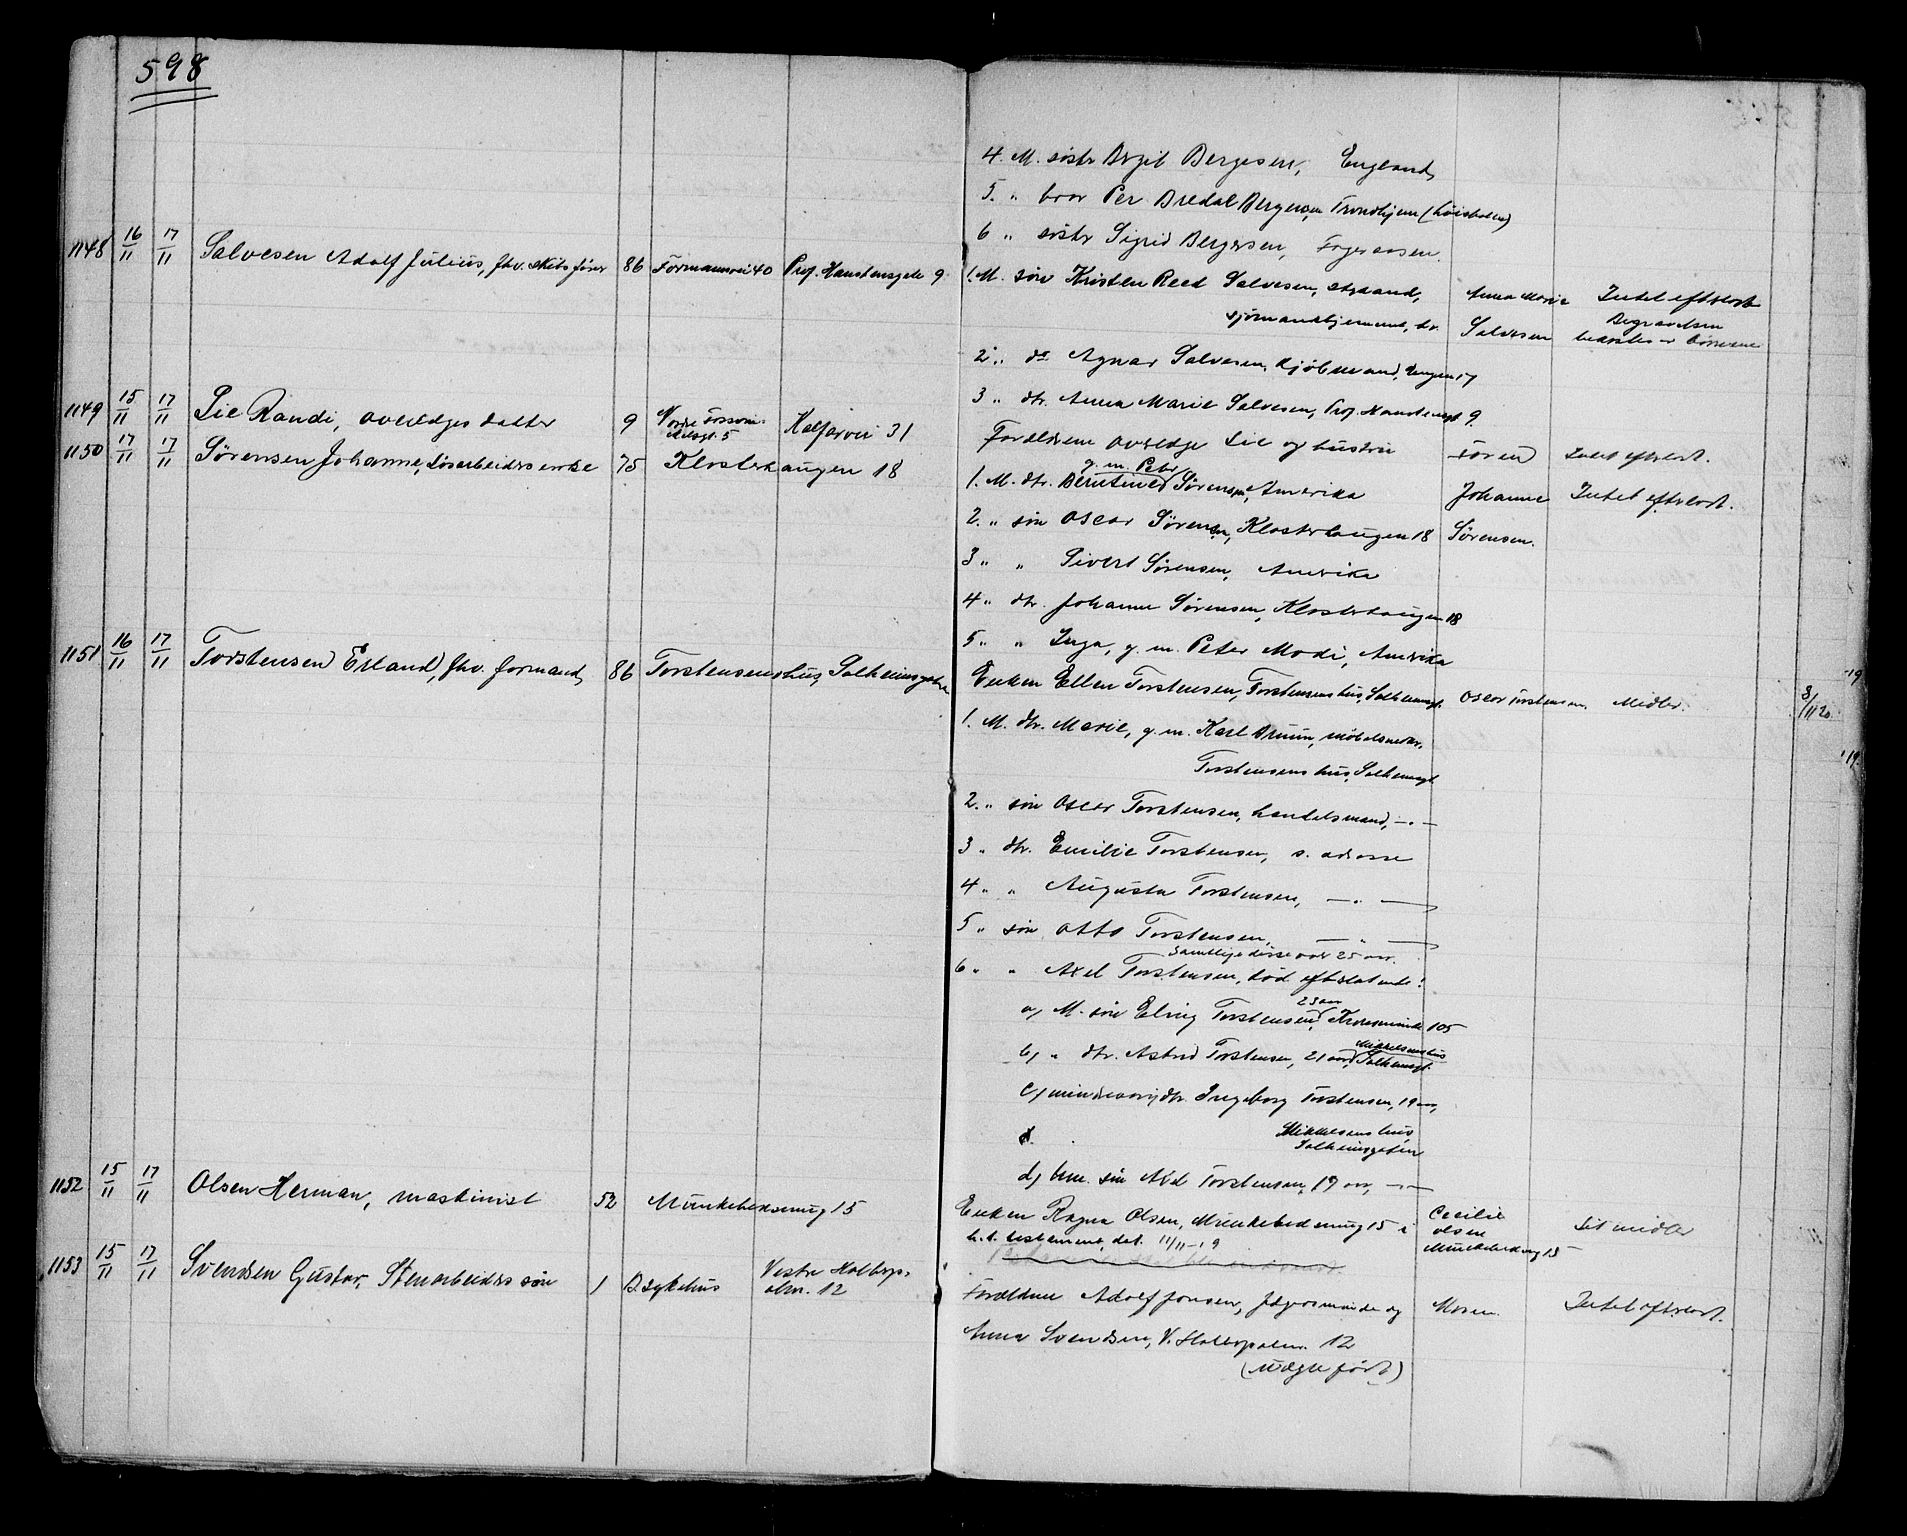 598
4. M. søstr Birgit Bergesen, England
5. " bror Per Bredal Bergesen, Trondhjem
6 " søstr Sigrid Bergesen,
1148 16/11 17/11 Salvesen Adolf Julius, fhv. skibsfører 86 Formannsvei 40 Prof. Hanstensgate 9
1. M. søn Kristen Reed Salvesen, Strand, Anna Marie Intet efterlatt
sjømandshjemmet, Salvesen Begravelsen
bekostes av børnene
2 " do Agnar Salvesen, kjøbmand, Engen 17
3 " dtr. Anna Marie Salvesen, Prof. Hanstensgt 9.
1149 15/11 17/11 Lie Randi, overlæges datter 9 Kalfarvei 31
Forældrene overlæge Lie og hustru Intet efterlatt.
1150 17/11 17/11 Sørensen Johanne, Løsarbeiders enke 75 Klosterhaugen 18
g. m. Peter
1. M. dtr. Sørensen, Amerika Johanne Intet efterlatt.
2. " søn Oscar Sørensen, Klosterhaugen 18 Sørensen.
3 " " Sivert Sørensen, Amerika
4 " dtr. Johanne Sørensen, Klosterhaugen 18
5 " " Inga, g. m. Peter Modi, Amerika
1151 16/11 17/11 Torstensen Erland, fhv. formand 86 Torstensens hus, Solheimsgaten
Enken Ellen Torstensen, Torstensens hus, Solheimsgt. Oscar Torstensen. Midler. 8/11 20
1. M. dtr. Marie, g. m. Karl Bruun, møbelsnedker,
Torstensens hus, Solheimsgt.
2. " søn Oscar Torstensen, handelsmand, -"-
3 " dtr. Emilie Torstensen, s. adresse
4 " " Augusta Torstensen, -"-
5 " søn Otto Torstensen, -"-
Samtlige disse over 25 aar.
6 " " Axel Torstensen, død efterlatende:
23 aar
a) M. søn Eling Torstensen, 105
Mikkelsens hus
b) " dtr. Astrid Torstensen, 21 aar, Solheimsgt.
c) mindreaarig dtr. Ingeborg Torstensen, 19 aar,
Mikkelsens hus
Solheimsgaten
d) søn Axel Torstensen, 19 aar, -"-
1152 15/11 17/11 Olsen Herman, maskinist 52 Munkebedsmug 15
Enken Ragna Olsen, Munkebedsmug 15 i Cecilie Litt midler
h. t. testament, dat. 11/11-19 Olsen
Munkebedsmug 15
1153 15/11 17/11 Svendsen Gustav, Stenarbeiders søn 1 B. sykehus Vestre Holbergs-
alm. 12
Forældrene Adolf Jonsen, og Moren. Intet efterlatt.
Anna Svendsen, V. Holbergsalm. 12
(uægte født)